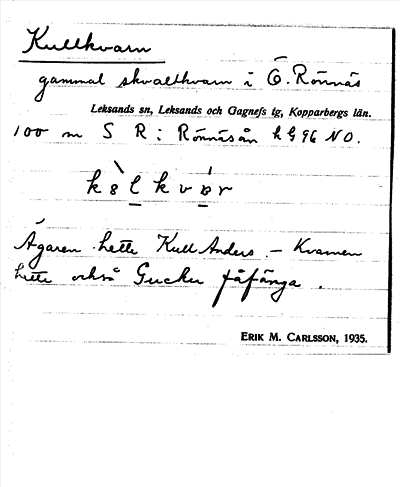 Kullkvarn
gammal skvaltkvarn i Ö. Rönnäs
Leksands sn, Leksands och Gagnefs tg, Kopparbergs län.
100 m S R i Rönnäsån k G 96 NO.
Ägaren hette Kull Anders. – Kvarnen
hette också Gucku fåfänga.
ERIK M. CARLSSON, 1935.